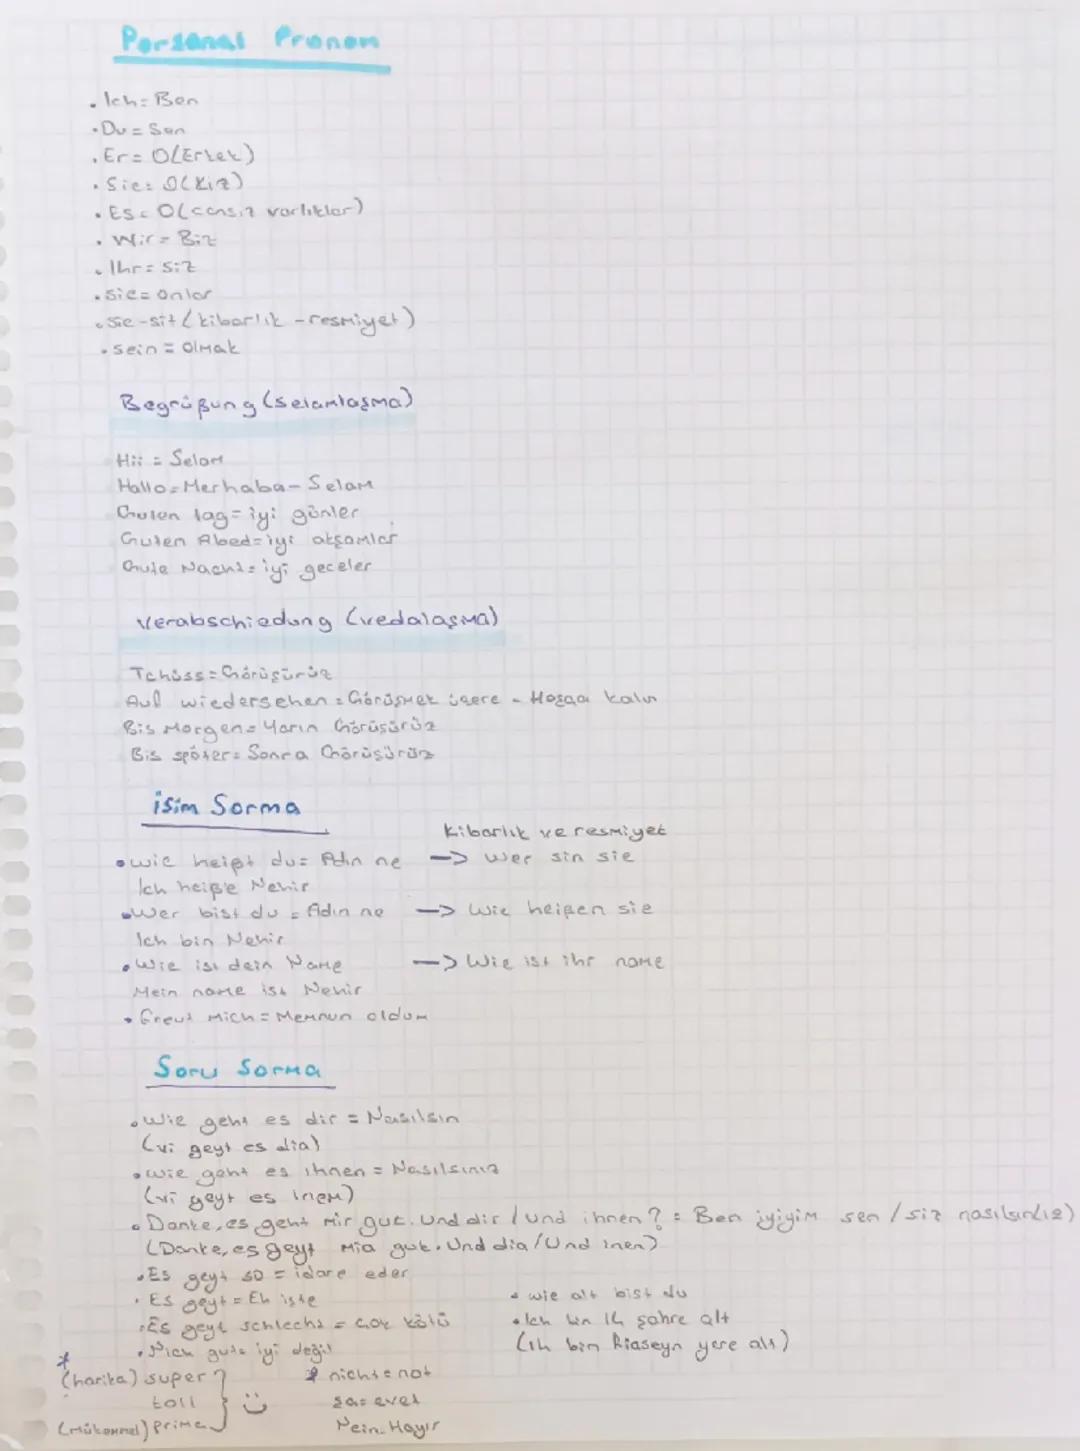 Personal Pronom
• Ich = Ben
• Du = Sen
• Er = O (Erkek)
• Sie = O (Kız)
• Es = O (cansız varlıklar)
• Wir = Biz
• Ihr = siz
• Sie = onlar
• Sie - siz (kibarlık - resmiyet)
• sein = olmak
Begrüßung (selamlaşma)
Hii = Selam
Hallo = Merhaba - Selam
Guten tag = iyi günler
Guten Abed = iyi akşamlar
Gute Nacht = iyi geceler
Verabschiedung (vedalaşma)
Tchüss = Görüşürüz
Auf wiedersehen = Görüşmek üzere - Hoşça kalın
Bis Morgen = Yarın Görüşürüz
Bis später = Sonra Görüşürüz
isim Sorma
Kibarlık ve resmiyet
• wie heißt du = Adın ne → Wer sin sie
Ich heiße Nehir
• Wer bist du = Adın ne → Wie heißen sie
Ich bin Nehir
• Wie ist dein Name → Wie ist ihr name
Mein name ist Nehir
• Freut mich = Memnun oldum
Soru Sorma
• Wie geht es dir = Nasılsın
(vi geyt es dia)
• wie geht es ihnen = Nasılsınız
(vi geyt es inem)
• Danke, es geht mir gut. Und dir / und ihnen? = Ben iyiyim sen / siz nasılsın(ız)
(Danke, es geyt mia gut. Und dia / Und inen)
• Es geyt so = idare eder
• Es geyt = Eh işte
• Es geyt schlecht = çok kötü
• Nich gut = iyi değil
• wie alt bist du
• Ich bin 14 jahre alt
(ih bin fiaseyn yere alt)
* (harika) super
toll :)
(mükemmel) prima
* nicht = not
Ja = evet
Nein = Hayır